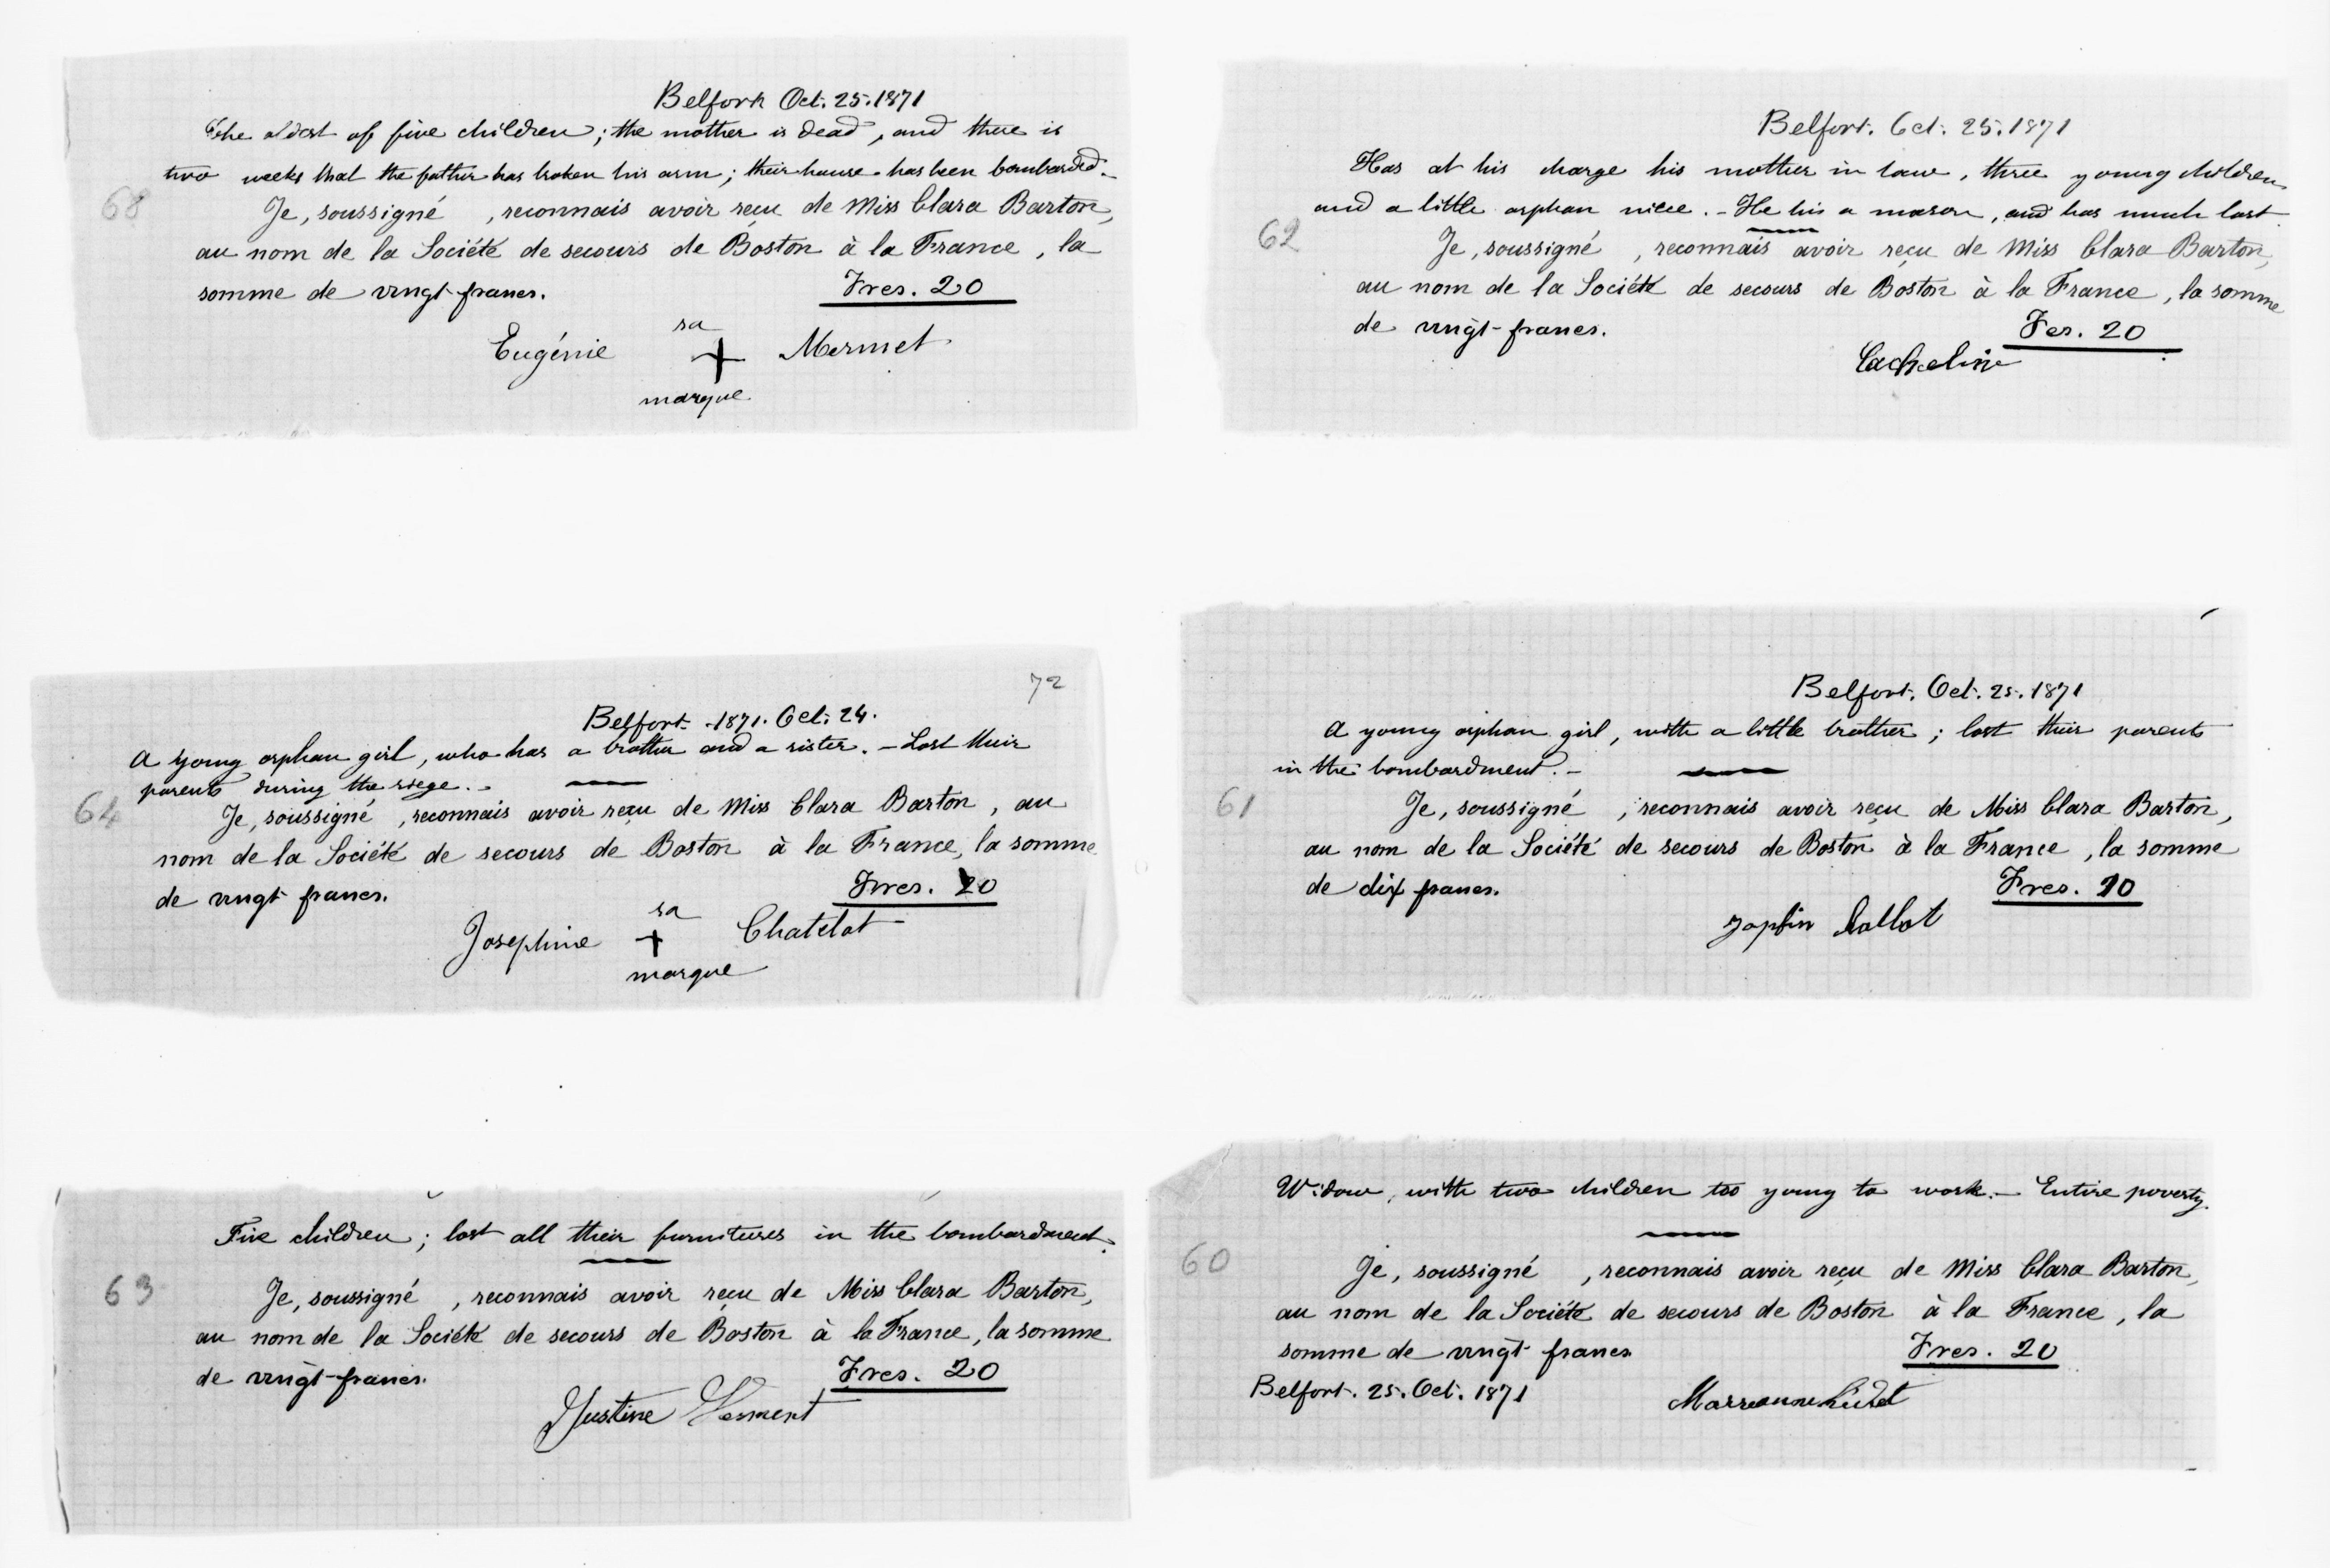 Belfort Oct. 25. 1871
The oldest of five children; the mother is dead, and there is
two weeks that the father has broken his arm; their house has been bombarded.
68
Je, soussigné , reconnais avoir reçu de Miss Clara Barton,
au nom de la Société de secours de Boston à la France, la
somme de vingt francs. Frcs. 20
Eugénie sa + marque Mermet
Belfort. 1871. Oct. 24.
72
A young orphan girl, who has a brother and a sister. - Lost their
parents during the siege. -
64
Je, soussigné , reconnais avoir reçu de Miss Clara Barton, au
nom de la Société de secours de Boston à la France, la somme
de vingt francs. Frcs. 20
Josephine sa + marque Chatelot
Five children; lost all their furnitures in the bombardment.
63
Je, soussigné , reconnais avoir reçu de Miss Clara Barton,
au nom de la Société de secours de Boston à la France, la somme
de vingt-francs. Frcs. 20
Justine
Belfort. Oct. 25. 1871
Has at his charge his mother in law, three young children
and a little orphan niece. - He his a mason, and has much lost
62
Je, soussigné , reconnais avoir reçu de Miss Clara Barton,
au nom de la Société de secours de Boston à la France, la somme
de vingt-francs. Fcs. 20
Cacheline
Belfort. Oct. 25. 1871
A young orphan girl, with a little brother; lost their parents
in the bombardment. -
61
Je, soussigné , reconnais avoir reçu de Miss Clara Barton,
au nom de la Société de secours de Boston à la France, la somme
de dix francs. Frcs. 10
Callot
Widow, with two children too young to work. - Entire poverty.
60
Je, soussigné , reconnais avoir reçu de Miss Clara Barton,
au nom de la Société de secours de Boston à la France, la
somme de vingt francs Frcs. 20
Belfort. 25. Oct. 1871